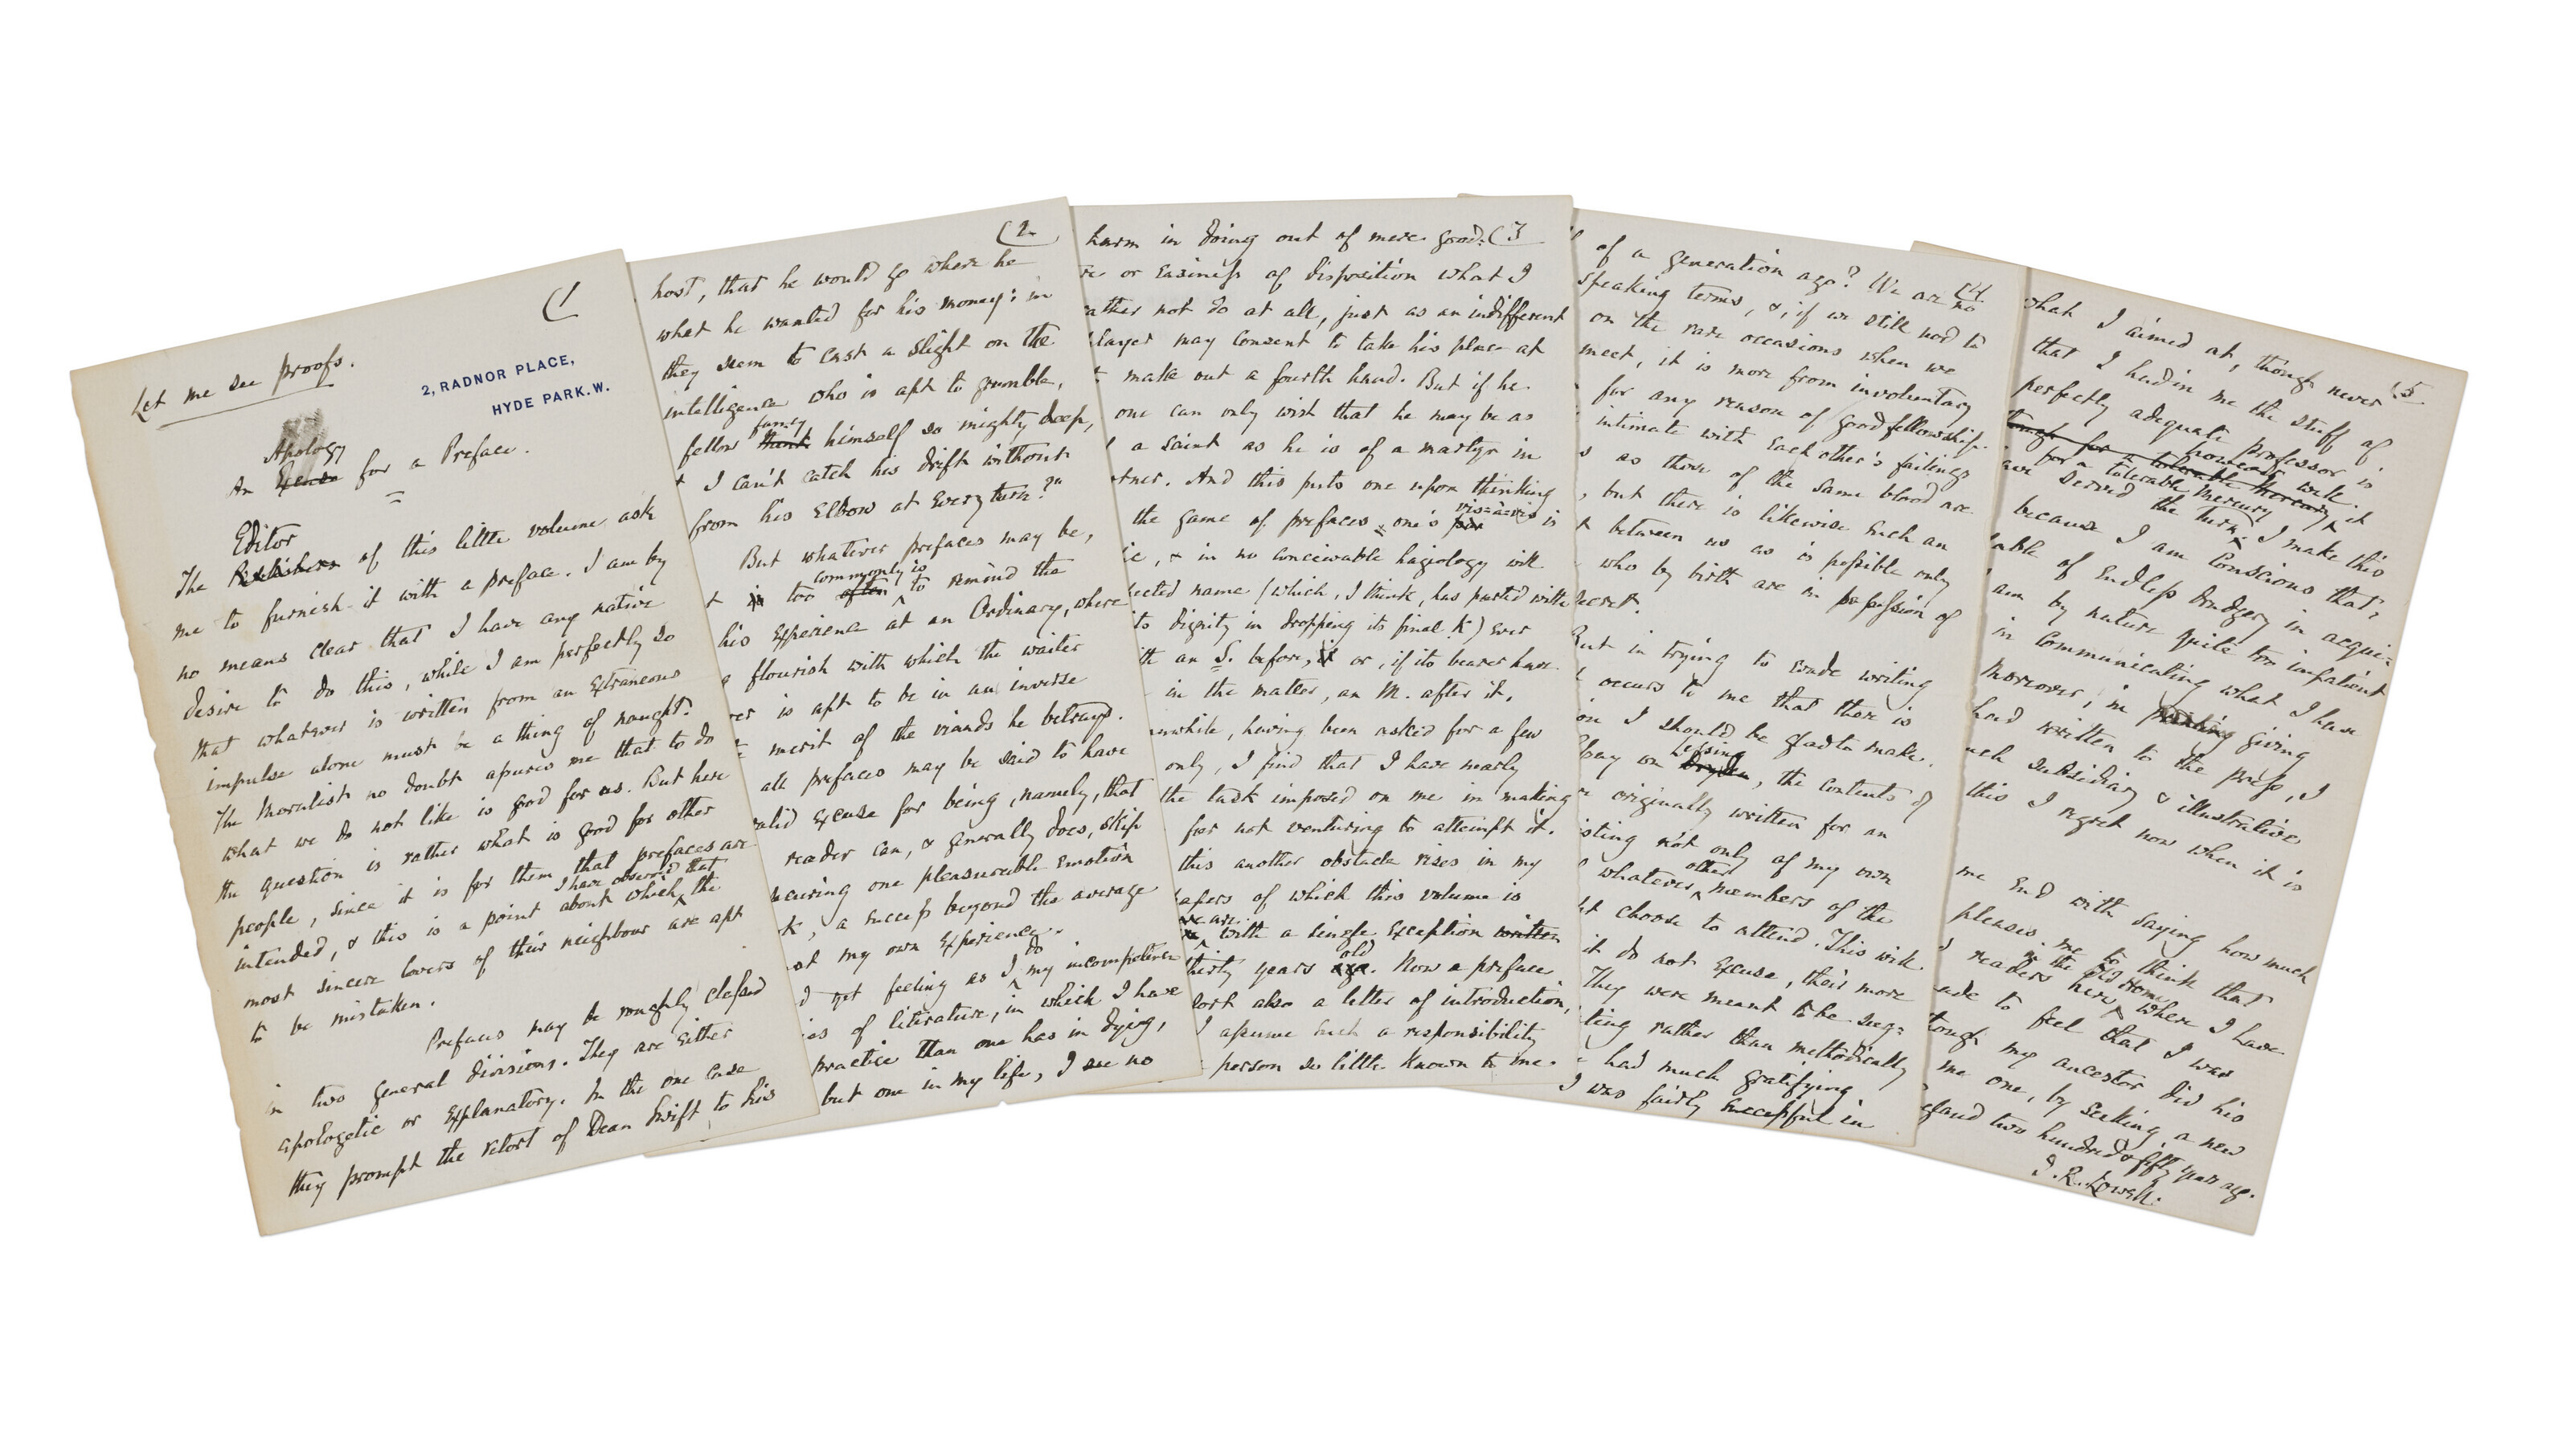 (1
Let me see proofs.
2, RADNOR PLACE,
HYDE PARK. W.
Apology
An Excuse for a Preface.
Editor
The Publishers of this little volume ask
me to furnish it with a preface. I am by
no means clear that I have any native
desire to do this, while I am perfectly so
that whatever is written from an extraneous
impulse alone must be a thing of nought.
The Moralist no doubt assures me that to do
what we do not like is good for us. But here
the question is rather what is good for other
people, since it is for them that prefaces are
I have observed that
intended, & this is a point about which the
most sincere lovers of their neighbour are apt
to be mistaken.
Prefaces may be roughly classed
in two general divisions. They are either
apologetic or explanatory. In the one case
they prompt the retort of Dean Swift to his
(2
host, that he would go where he
what he wanted for his money; in
they seem to cast a slight on the
intelligence who is apt to grumble,
fancy
fellow think himself so mighty deep,
t I can't catch his drift without
from his elbow at every turn?"
But whatever prefaces may be,
commonly is
t is too often to remind the
his experience at an Ordinary, where
flourish with which the waiter
ver is apt to be in an inverse
merit of the viands he betrays.
all prefaces may be said to have
valid excuse for being, namely, that
reader can, & generally does, skip
curing one pleasurable emotion
k, a success beyond the average
of my own experience.
do
d yet feeling as I my incompetence
es of literature, in which I have
practice than one has in dying,
but one in my life, I see no
harm in doing out of mere good= (3
re or easiness of disposition what I
rather not do at all, just as an indifferent
player may consent to take his place at
t make out a fourth hand. But if he
one can only wish that he may be as
a saint as he is of a martyr in
tner. And this puts one upon thinking
vis-à-vis
the game of prefaces one's is
ic, & in no conceivable hagiology will
ected name (which, I think, has parted with
its dignity in dropping its final k) ever
ith an S. before, it or, if its bearer have
in the matter, an M. after it.
nwhile, having been asked for a few
only, I find that I have nearly
the task imposed on me in making
for not venturing to attempt it.
this another obstacle rises in my
apers of which this volume is
we are
with a single exception written
old
thirty years ago. Now a preface
sort also a letter of introduction,
I assume such a responsibility
person so little known to me.
(4
of a generation ago? We are no
speaking terms, &, if we still nod to
on the rare occasions when we
meet, it is more from involuntary
for any reason of good fellowship.
intimate with each other's failings
s as those of the same blood are
, but there is likewise such an
t between us as is possible only
who by birth are in possession of
secret.
But in trying to evade writing
occurs to me that there is
on I should be glad to make.
Lessing
Essay on Dryden, the contents of
originally written for an
isting not only of my own
other
whatever members of the
ht choose to attend. This will
it do not excuse, their more
They were meant to be sug=
ting rather than methodically
had much gratifying
I was fairly successful in
(5
what I aimed at, though never
that I had in me the stuff of
perfectly adequate professor is
tough for a tolerable Mercury
for a tolerable Mercury it
ave served the turn. I make this
because I am conscious that,
able of endless drudgery in acqui=
am by nature quite too impatient
in communicating what I have
Moreover, in printing giving
had written to the press, I
uch subsidiary & illustrative
this I regret now when it is
me end with saying how much
pleases me to think that
in the old home
readers here where I have
ade to feel that I was
though my ancestor did his
me one, by seeking a new
sand two hundred & fifty years ago.
J. R. Lowell.